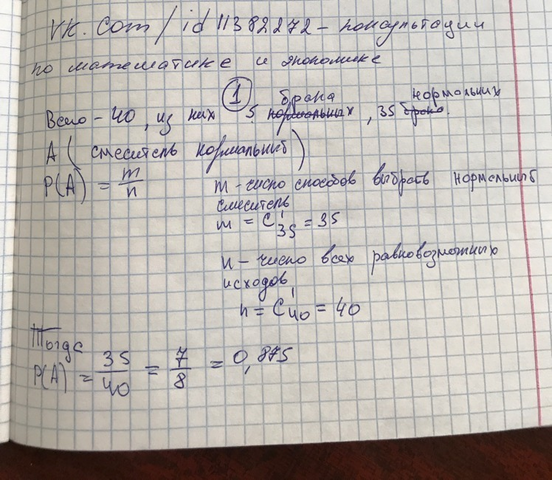 vk.com/id11382272 - консультации
по математике и экономике
1
брака нормальных
Всего - 40, из них 5 нормальных, 35 брака.
A (смеситель нормальный)
P(A) = m/n
m - число способов выбрать нормальный
смеситель
m = C¹₃₅ = 35
n - число всех равновозможных
исходов
n = C¹₄₀ = 40
Тогда
P(A) = 35/40 = 7/8 = 0,875